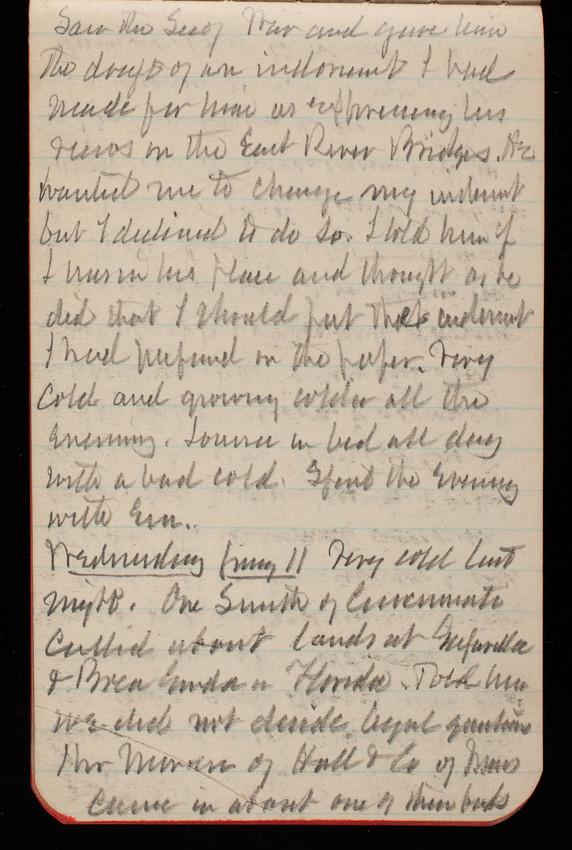 Saw the Sec of War and gave him
the draft of an indorsment I had
made for him as expressing his
views on the East River Bridges. He
wanted me to change my indsmt
but I declined to do so. I told him if
I was in his place and thought as he
did that I should put that indsmt
I had prepared on the paper. Very
cold and growing colder all the
evening. Louise in bed all day
with a bad cold. Spent the evening
with Em.
Wednesday Jany 11 Very cold last
night. One Smith of Cincinnati
called about lands at
& Boca Florida. Told him
we did not decide legal questions
Mr of Hall & Co of
came in about one of their bids